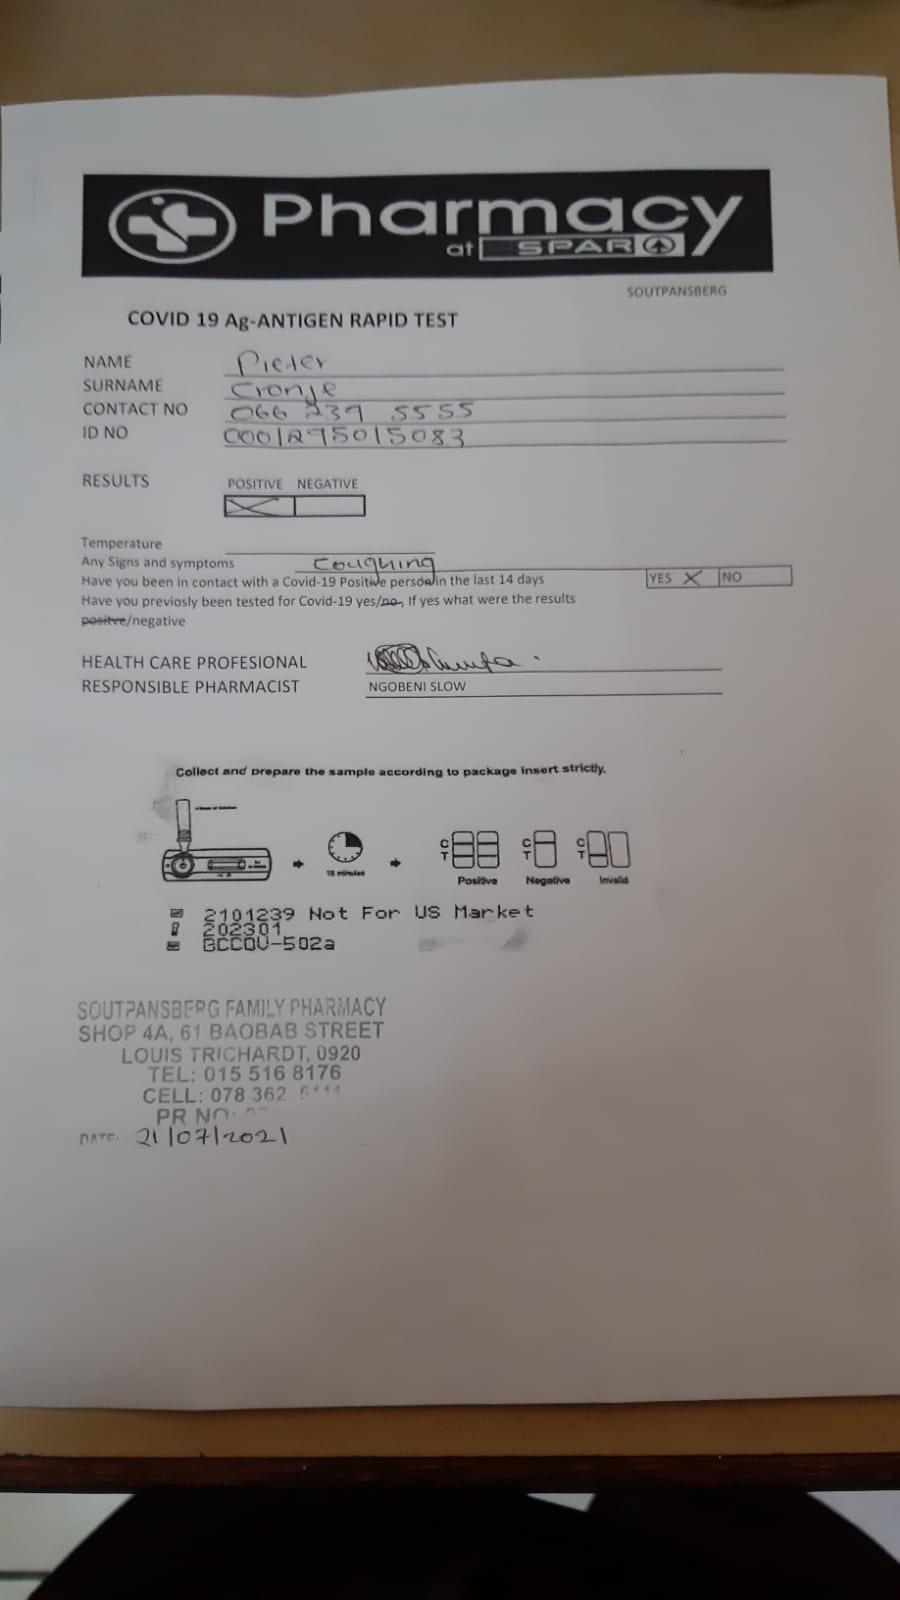 Pharmacy
at SPAR
SOUTPANSBERG
COVID 19 Ag-ANTIGEN RAPID TEST
NAME Pieter
SURNAME Cronje
CONTACT NO 066 239 5555
ID NO 0001295015083
RESULTS POSITIVE NEGATIVE
Temperature
Any Signs and symptoms Coughing
Have you been in contact with a Covid-19 Positive person in the last 14 days YES X NO
Have you previosly been tested for Covid-19 yes/no, If yes what were the results
positve/negative
HEALTH CARE PROFESIONAL
RESPONSIBLE PHARMACIST NGOBENI SLOW
Collect and prepare the sample according to package insert strictly.
15 minutes
C
T
C
T
C
T
Positive Negative Invalid
2101239 Not For US Market
202301
GCCOV-502a
SOUTPANSBERG FAMILY PHARMACY
SHOP 4A, 61 BAOBAB STREET
LOUIS TRICHARDT, 0920
TEL: 015 516 8176
CELL: 078 362
PR NO:
DATE: 21/07/2021